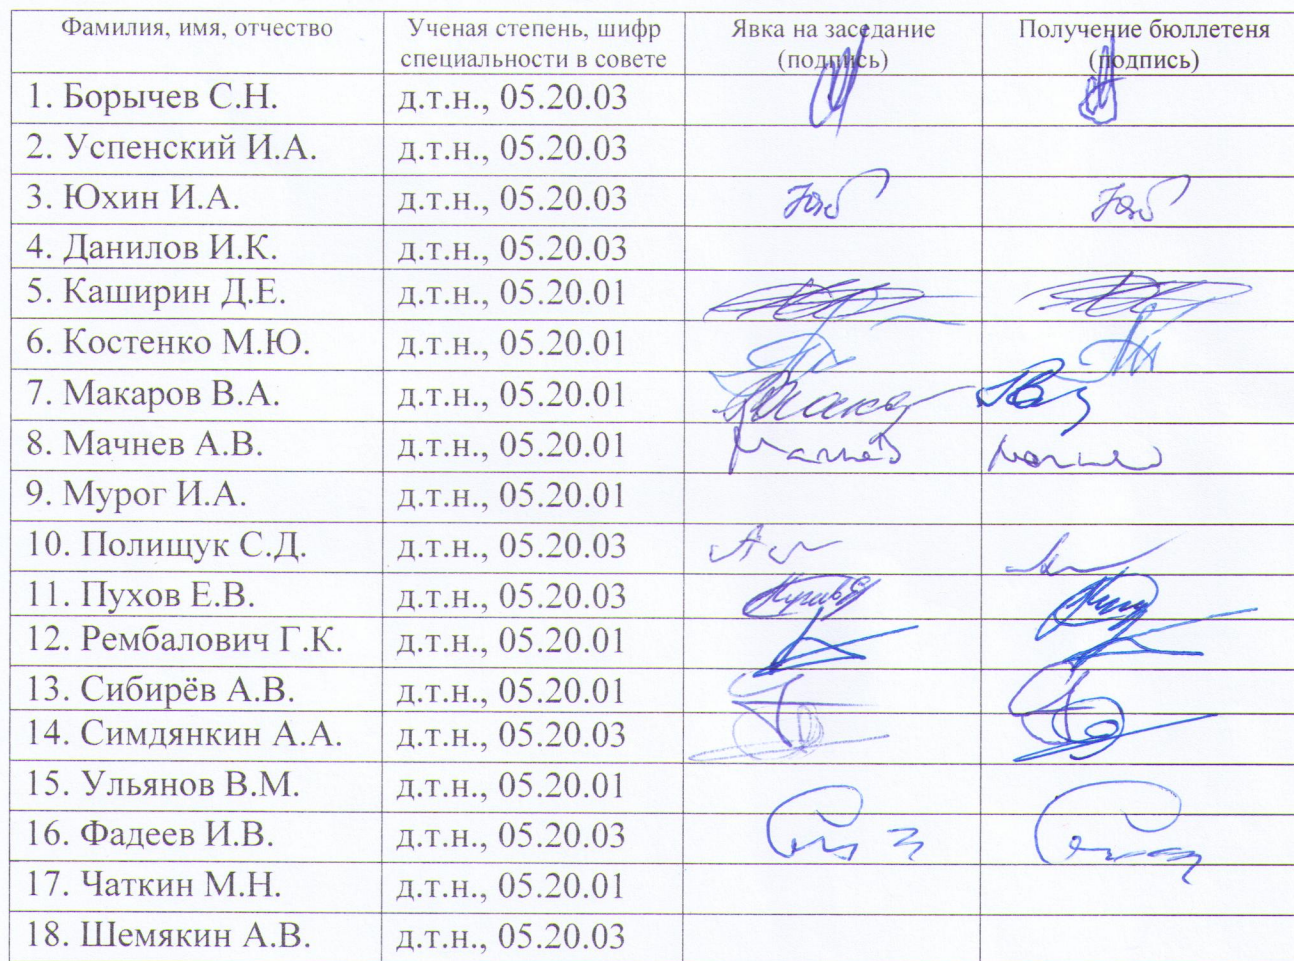 Фамилия, имя, отчество
Ученая степень, шифр
специальности в совете
Явка на заседание
(подпись)
Получение бюллетеня
(подпись)
1. Борычев С.Н. д.т.н., 05.20.03
2. Успенский И.А. д.т.н., 05.20.03
3. Юхин И.А. д.т.н., 05.20.03
4. Данилов И.К. д.т.н., 05.20.03
5. Каширин Д.Е. д.т.н., 05.20.01
6. Костенко М.Ю. д.т.н., 05.20.01
7. Макаров В.А. д.т.н., 05.20.01
8. Мачнев А.В. д.т.н., 05.20.01
9. Мурог И.А. д.т.н., 05.20.01
10. Полищук С.Д. д.т.н., 05.20.03
11. Пухов Е.В. д.т.н., 05.20.03
12. Рембалович Г.К. д.т.н., 05.20.01
13. Сибирёв А.В. д.т.н., 05.20.01
14. Симдянкин А.А. д.т.н., 05.20.03
15. Ульянов В.М. д.т.н., 05.20.01
16. Фадеев И.В. д.т.н., 05.20.03
17. Чаткин М.Н. д.т.н., 05.20.01
18. Шемякин А.В. д.т.н., 05.20.03